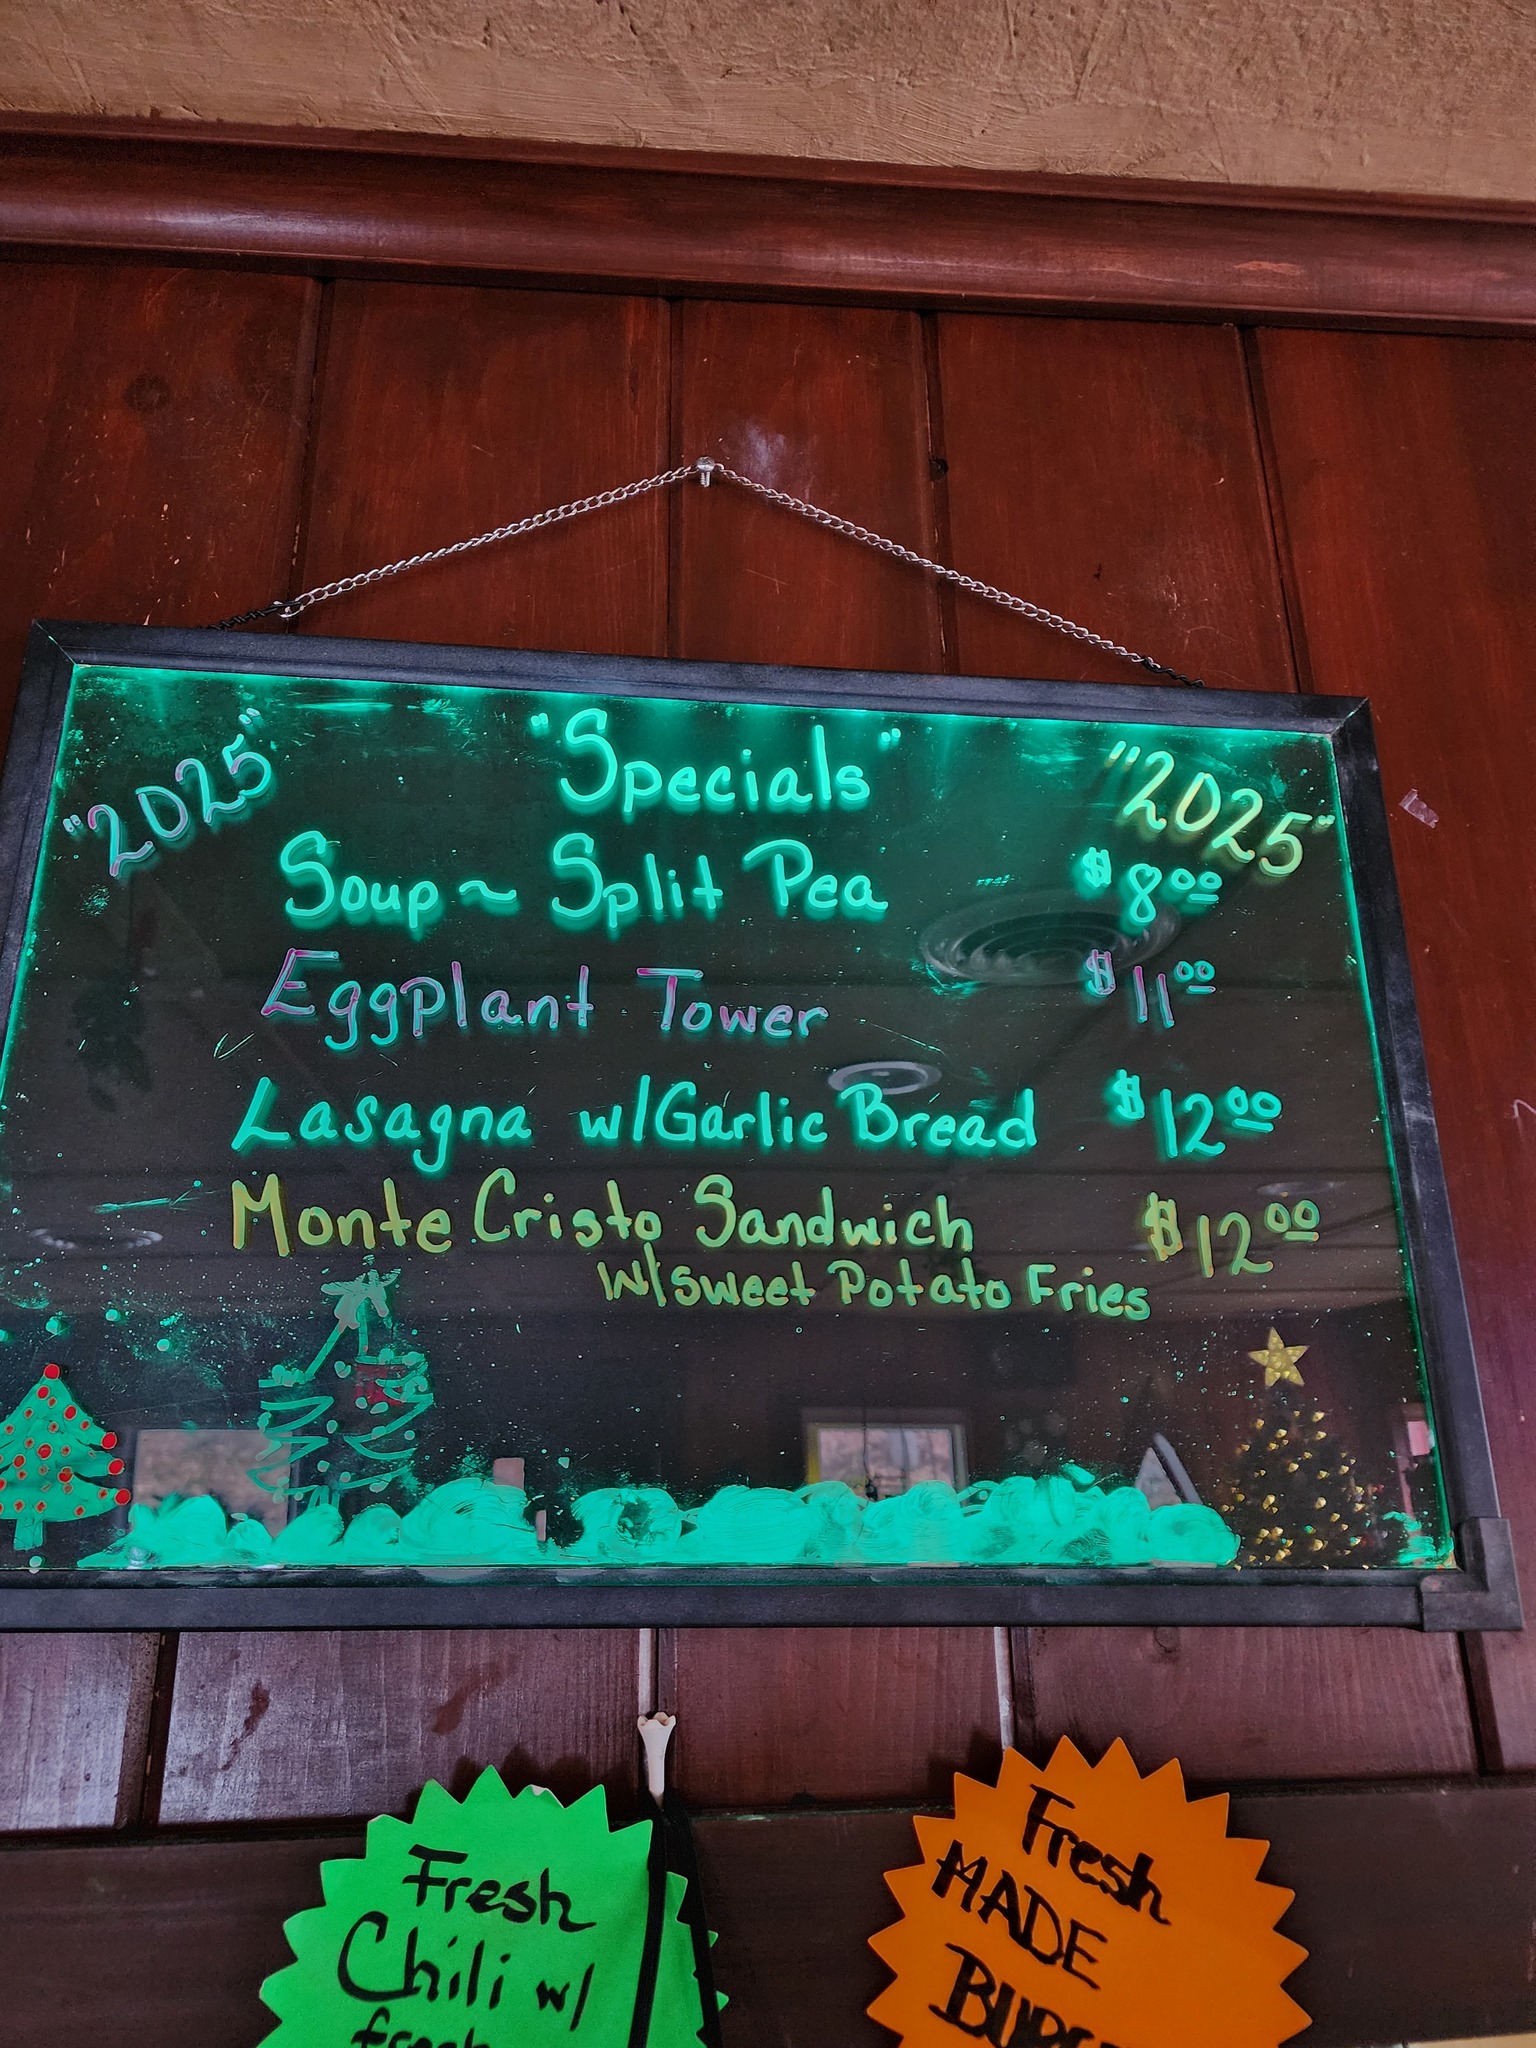 "2025" "Specials" "2025"
Soup ~ Split Pea $8.00
Eggplant Tower $11.00
Lasagna w/Garlic Bread $12.00
Monte Cristo Sandwich $12.00
w/sweet Potato Fries
Fresh
Chili w/
fresh
Fresh
MADE